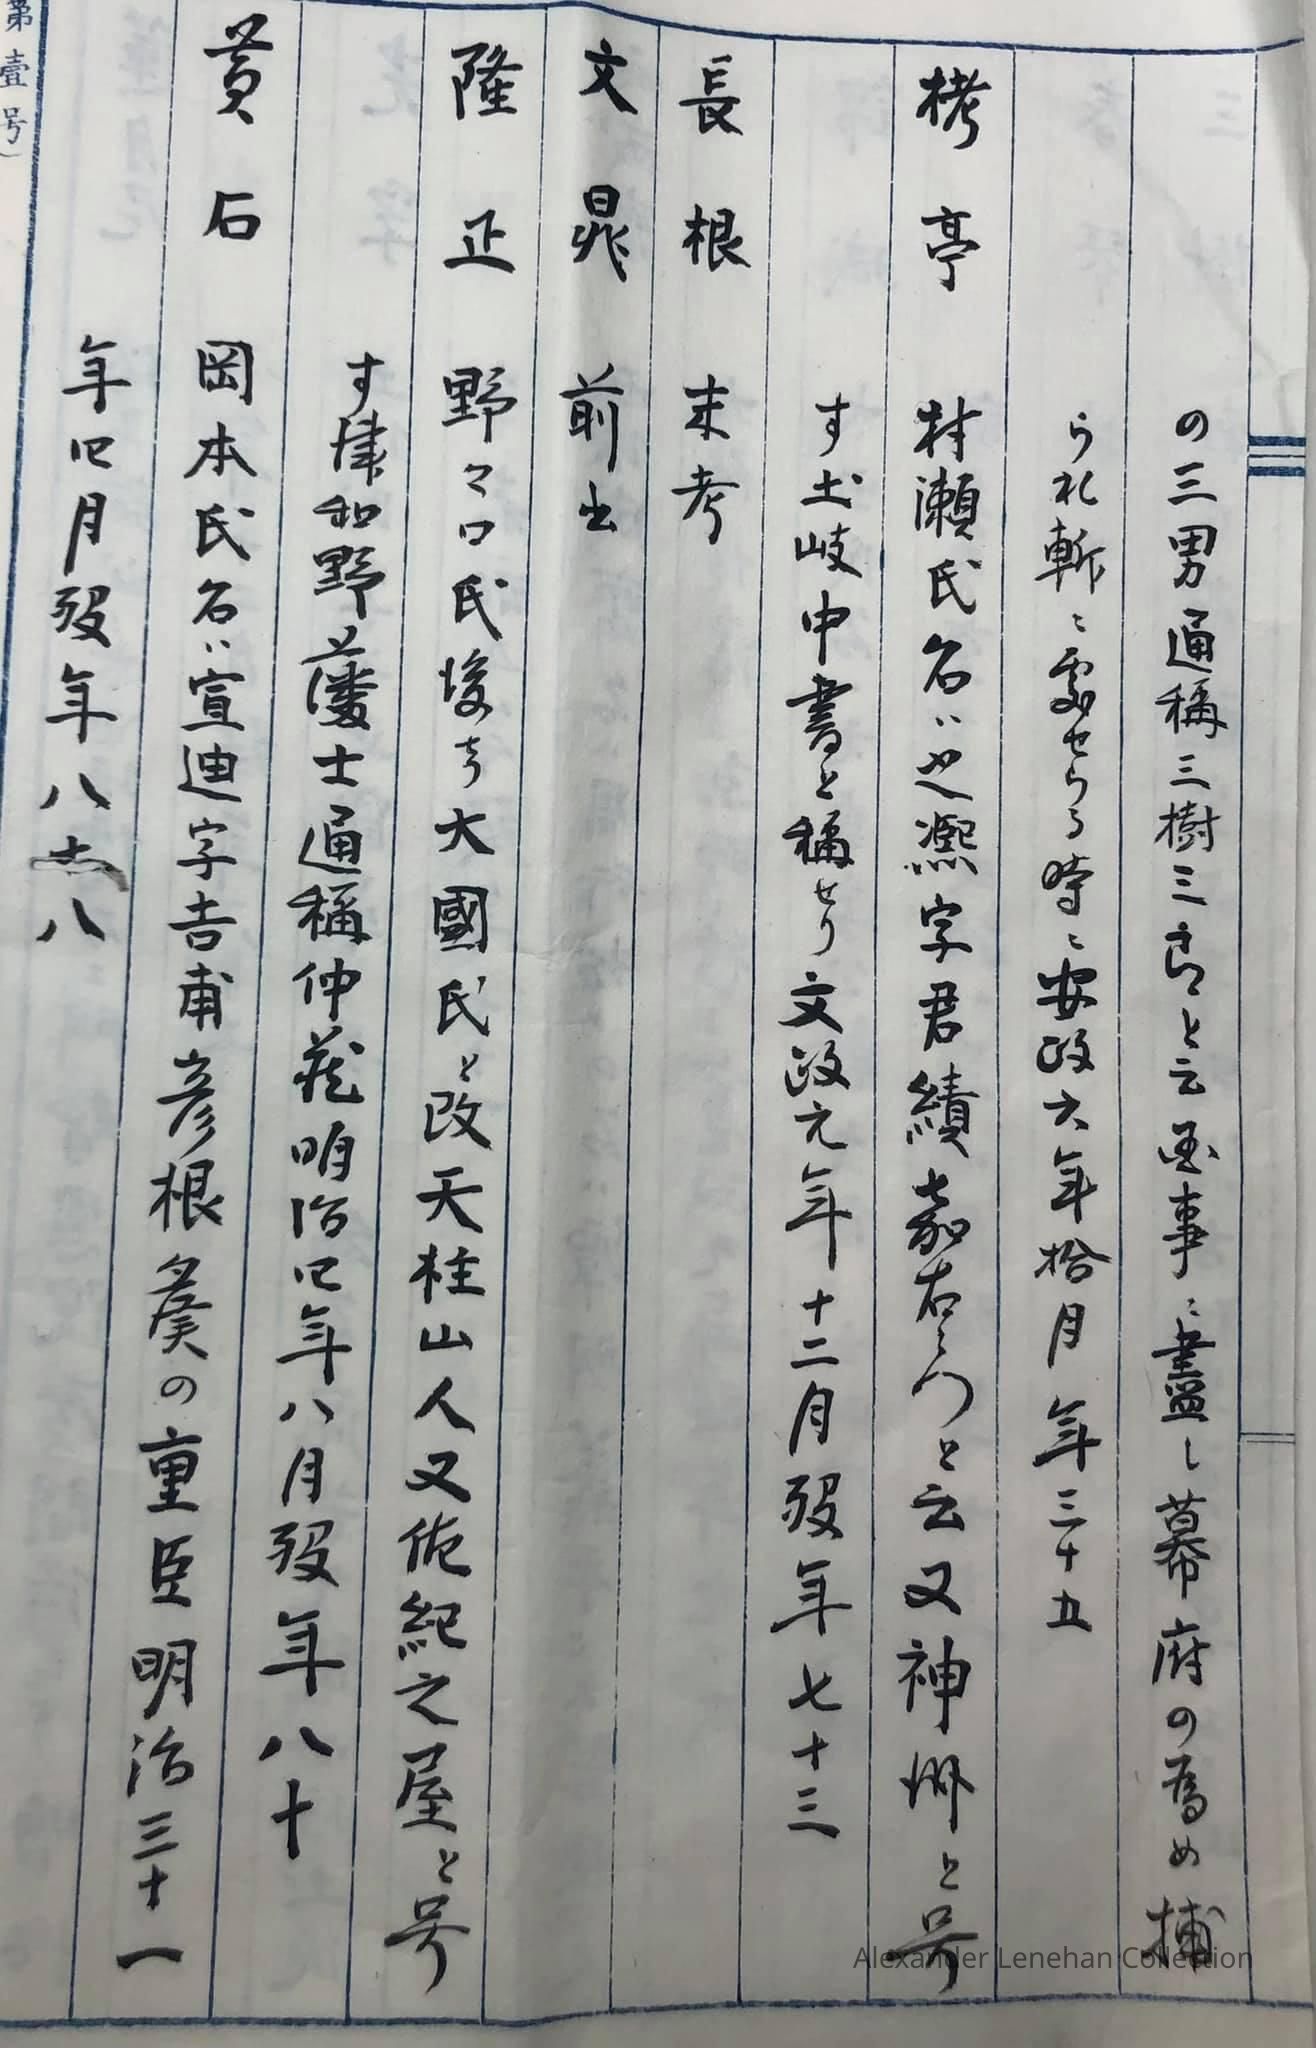 の三男通稱三樹三郎と云国事ニ盡し幕府の為め捕
られ斬ニ處せらる時ニ安政六年拾月年三十五
栲亭 村瀬氏名ハ之凞字君績嘉右衛门と云又神洲と号
す土岐中書と稱せり文政元年十二月歿年七十三
長根 末考
文晁 前出
隆正 野々口氏後ち大國氏と改天柱山人又佐紀之屋と号
す津和野藩士通稱仲蔵明治四年八月歿年八十
黄石 岡本氏名ハ宣迪字吉甫彦根矦の重臣明治三十一
年四月歿年八十八
第壹号)
Alexander Lenehan Collection